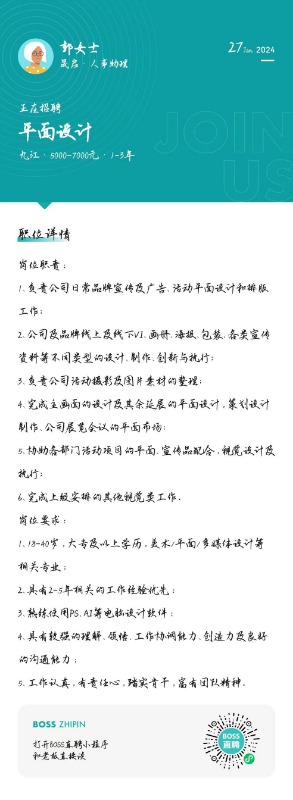 郭女士
晟启 · 人事助理
27 Jan. 2024
JOIN
US
正在招聘
平面设计
九江 · 5000-7000元 · 1-3年
职位详情
岗位职责：
1、负责公司日常品牌宣传及广告、活动平面设计和排版
工作；
2、公司及品牌线上及线下VI、画册、海报、包装、各类宣传
资料等不同类型的设计、制作、创新与执行；
3、负责公司活动摄影及图片素材的整理；
4、完成主画面的设计及其余延展的平面设计，策划设计
制作、公司展览会议的平面市场；
5、协助各部门活动项目的平面、宣传品配合、视觉设计及
执行；
6、完成上级安排的其他视觉类工作。
岗位要求：
1、18-40岁，大专及以上学历，美术/平面/多媒体设计等
相关专业；
2、具有2-5年相关的工作经验优先；
3、熟练使用PS、AI等电脑设计软件；
4、具有较强的理解、领悟、工作协调能力、创造力及良好
的沟通能力；
5、工作认真，有责任心，踏实肯干，富有团队精神。
BOSS ZHIPIN
打开BOSS直聘小程序
和老板直接谈
BOSS
直聘